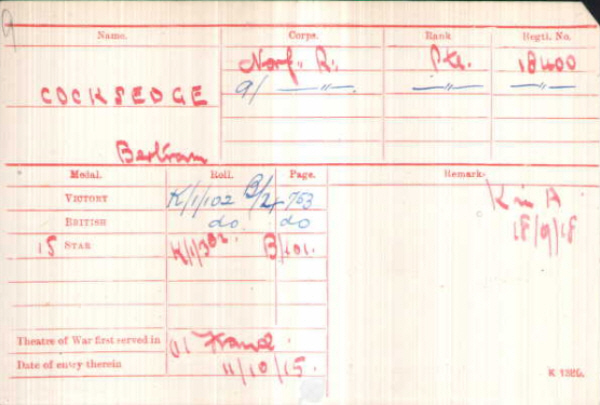 9
Name. Corps. Rank Regtl. No.
Norf. R. Pte. 18400
COCKSEDGE 9/ —"— —"— —"—
Bertram
Medal. Roll. Page. Remarks
VICTORY K/1/102 B/2 753
BRITISH do do
15 STAR K/1/3 B/101.
K in A
18/9/18
Theatre of War first served in (1) France.
Date of entry therein 11/10/15.
K 1380.